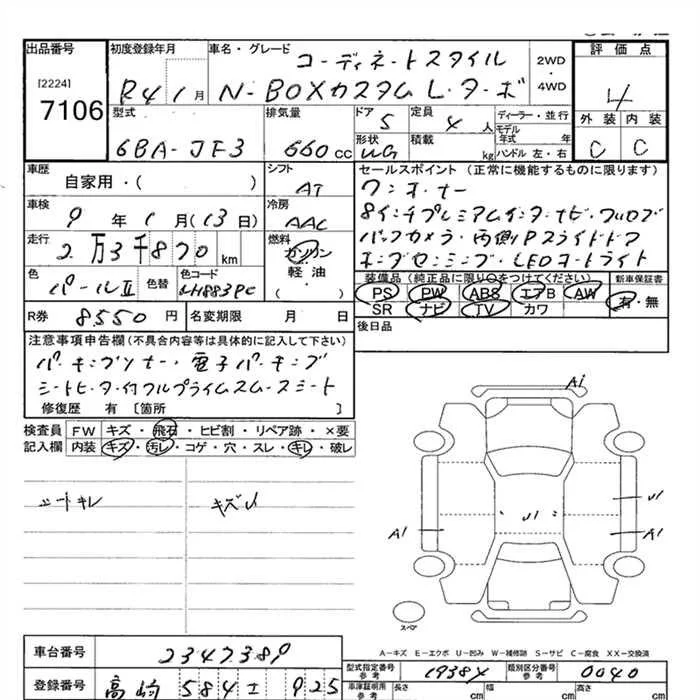 出品番号 初度登録年月 車名・グレード コーディネートスタイル 2WD・4WD 評価点
[2224] 7106 R4 1月 N-BOXカスタム L・ターボ 4
型式 排気量 ドア 5 定員 4人 ディーラー・並行 外装 内装
6BA-JF3 660cc 形状 積載 kg モデル年式 年 ハンドル 左・右 C C
車歴 シフト セールスポイント(正常に機能するものに限ります)
自家用・( ) AT ワンオーナー
車検 9年1月(13日) 冷房 AAC 8インチプレミアムインターナビ・フルセグ
走行 2万3千870km 燃料 ガソリン・軽油・( ) バックカメラ・両側Pスライドドア
色 パールⅡ 色替 色コード NH883PC
装備品(純正品に限り○をつけてください) 新車保証書
PS PW ABS エアB AW 有・無
SR ナビ TV カワ
R券 8550円 名変期限 月 日 後日品
注意事項申告欄(不具合内容等は具体的に記入して下さい)
パーキングセンサー・電子パーキング
シートヒーター付フルプライムスムースシート
修復歴 有 [箇所 ]
検査員記入欄 FW キズ・飛石・ヒビ割・リペア跡・×要
内装 キズ・汚レ・コゲ・穴・スレ・キレ・破レ
シートキレ キズU
A1
U1
U1
A1 A1
スペア
A-キズ E-エクボ U-凹み W-補修跡 S-サビ C-腐食 XX-交換済
車台番号 2347389 型式指定番号 参考 19384 類別区分番号 参考 0040
登録番号 高崎 584 925 車庫証明用 参考 長さ cm 幅 cm 高さ cm